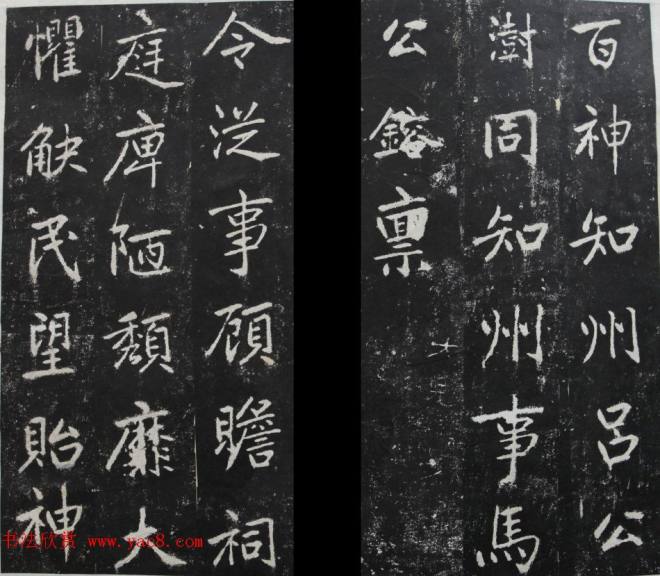 百神知州呂公
澍同知州事馬
公鎔禀
令从事顧瞻祠
庭庳陋頽靡大
懼觖民望貽神
书法欣赏 www.yac8.com